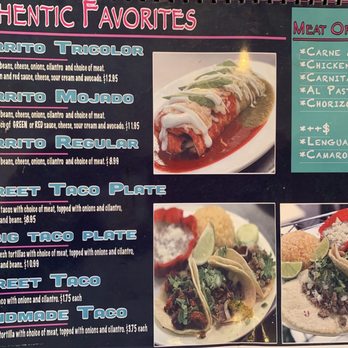 HENTIC FAVORITES
RRITO TRICOLOR
beans, cheese, onions, cilantro and choice of meat.
and red sauce, cheese, sour cream and avocado. $12.95
RRITO MOJADO
beans, cheese, onions, cilantro and choice of meat.
of GREEN or RED sauce, cheese, sour cream and avocado. $11.85
RRITO REGULAR
beans, cheese, onions, cilantro and choice of meat. $ 8.99
REET TACO PLATE
tacos with choice of meat, topped with onions and cilantro,
and beans. $8.95
TACO PLATE
tortillas with choice of meat, topped with onions and cilantro,
and beans. $10.99
REET TACO
with onions and cilantro. $1.75 each
DMADE TACO
tortilla with choice of meat, topped with onions and cilantro. $3.75 each
MEAT OP
*CARNE
*CHICKEN
*CARNITA
*AL PAST
*CHORIZO
*++$
*LENGUA
*CAMARO